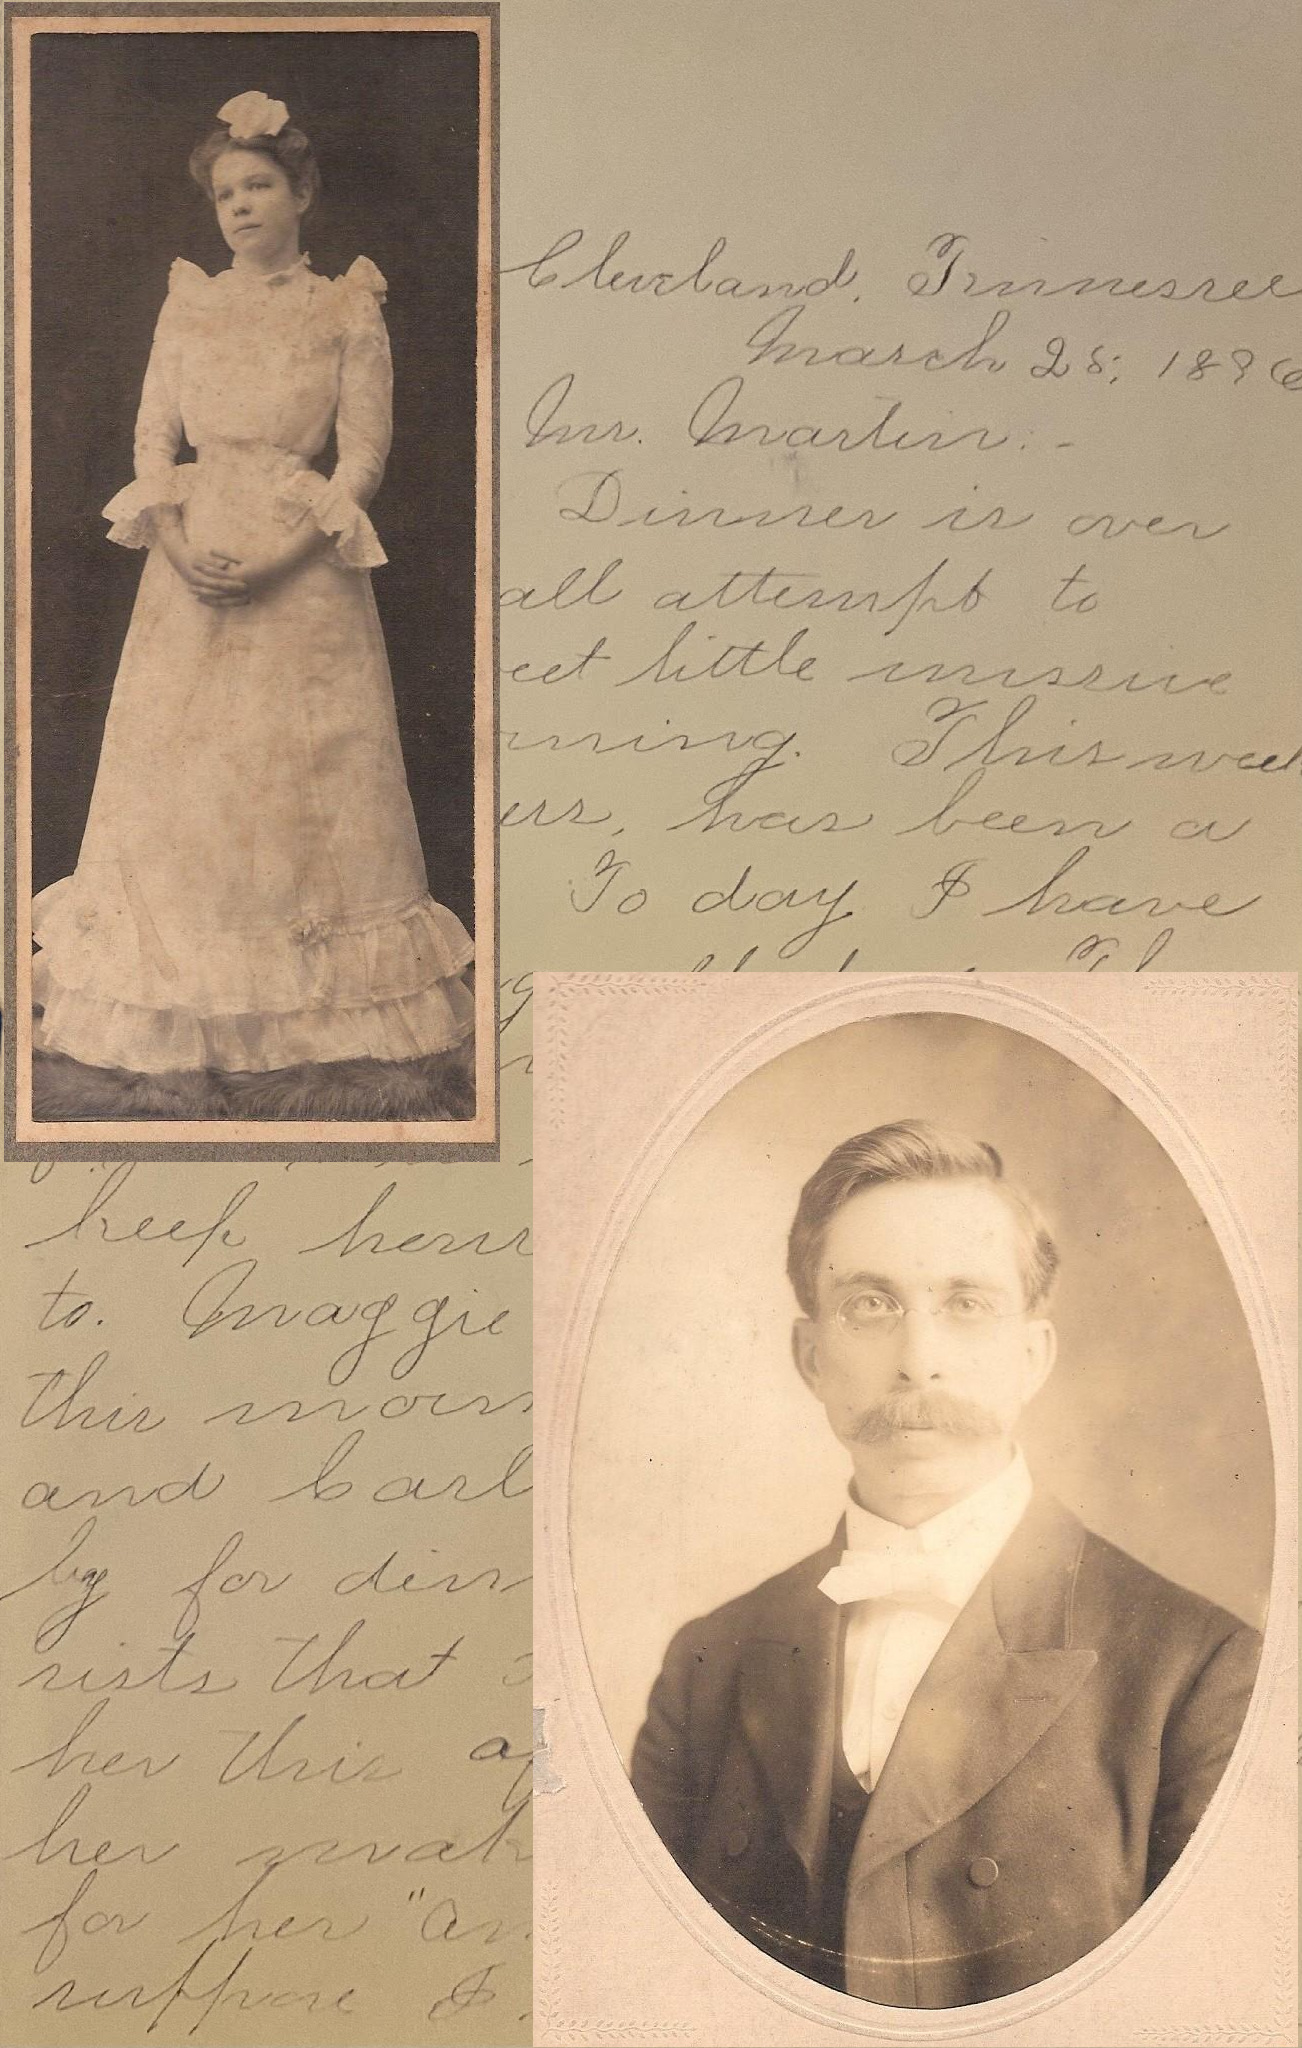 Cleveland, Tennessee
March 28, 1896
Mr. Martin:-
Dinner is over
all attempt to
eet little missive
rning. This week
ers, has been a
To day I have
keep hous
to. Maggie
this morn
and Carl
by for din
sists that
her this af
her mak
for her "an
suppose I